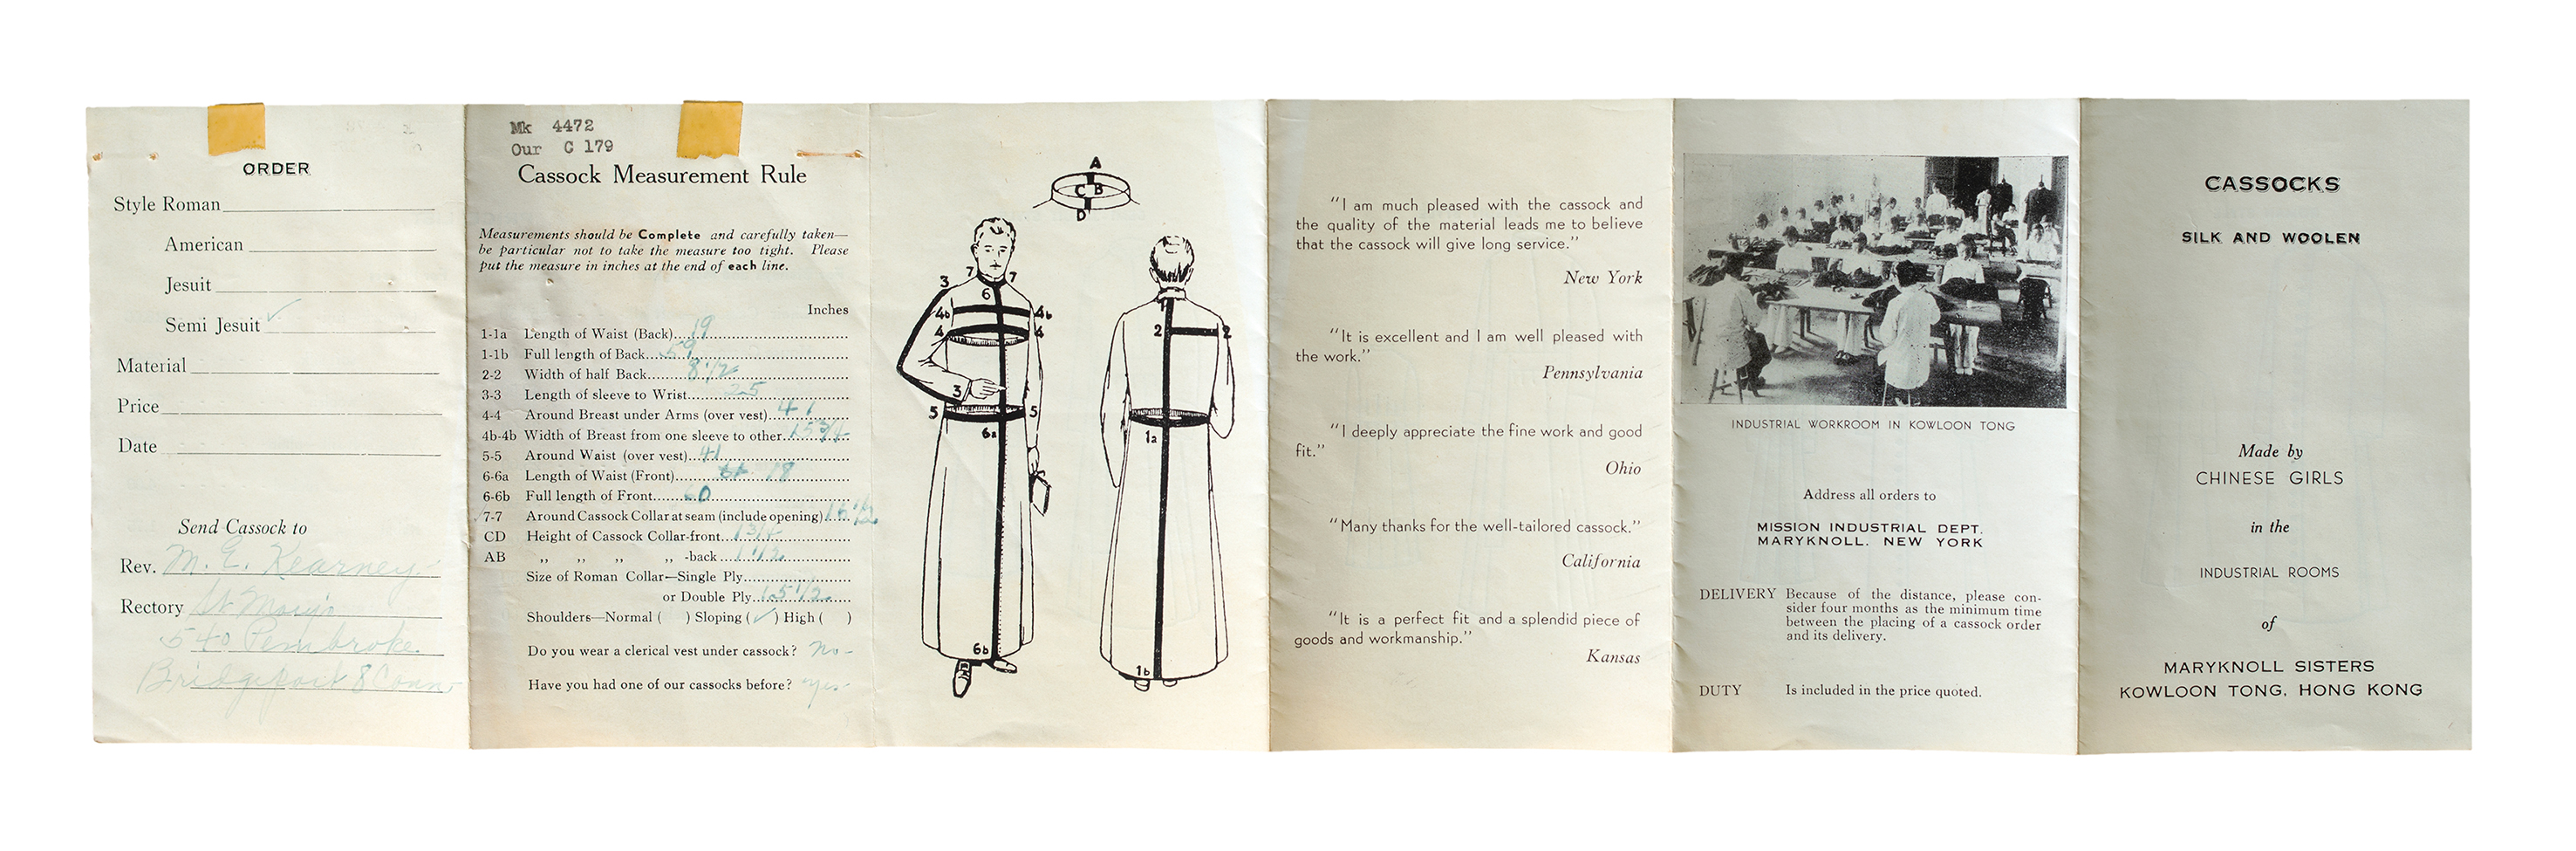 ORDER
Style Roman
American
Jesuit
Semi Jesuit ✓
Material
Price
Date
Send Cassock to
Rev. M. E. Kearney
Rectory St Mary's
540 Pembroke
Bridgeport 8 Conn
Mk 4472
Our C 179
Cassock Measurement Rule
Measurements should be Complete and carefully taken—
be particular not to take the measure too tight. Please
put the measure in inches at the end of each line.
Inches
1-1a Length of Waist (Back)....19
1-1b Full length of Back....59
2-2 Width of half Back....8 1/2
3-3 Length of sleeve to Wrist....25
4-4 Around Breast under Arms (over vest)....41
4b-4b Width of Breast from one sleeve to other....15 3/4
5-5 Around Waist (over vest)....41
6-6a Length of Waist (Front)....18
6-6b Full length of Front....60
7-7 Around Cassock Collar at seam (include opening)....16 1/2
CD Height of Cassock Collar-front....1 3/4
AB ,, ,, ,, ,, -back....1 1/2
Size of Roman Collar—Single Ply....
or Double Ply....15 1/2
Shoulders—Normal ( ) Sloping (✓) High ( )
Do you wear a clerical vest under cassock? no-
Have you had one of our cassocks before? yes-
A
C B
D
7 7
3 6
4b 4b
4 4
3
5 5
6a
6b
1
2 2
1a
1b
"I am much pleased with the cassock and
the quality of the material leads me to believe
that the cassock will give long service."
New York
"It is excellent and I am well pleased with
the work."
Pennsylvania
"I deeply appreciate the fine work and good
fit."
Ohio
"Many thanks for the well-tailored cassock."
California
"It is a perfect fit and a splendid piece of
goods and workmanship."
Kansas
INDUSTRIAL WORKROOM IN KOWLOON TONG
Address all orders to
MISSION INDUSTRIAL DEPT.
MARYKNOLL. NEW YORK
DELIVERY Because of the distance, please con-
sider four months as the minimum time
between the placing of a cassock order
and its delivery.
DUTY Is included in the price quoted.
CASSOCKS
SILK AND WOOLEN
Made by
CHINESE GIRLS
in the
INDUSTRIAL ROOMS
of
MARYKNOLL SISTERS
KOWLOON TONG, HONG KONG